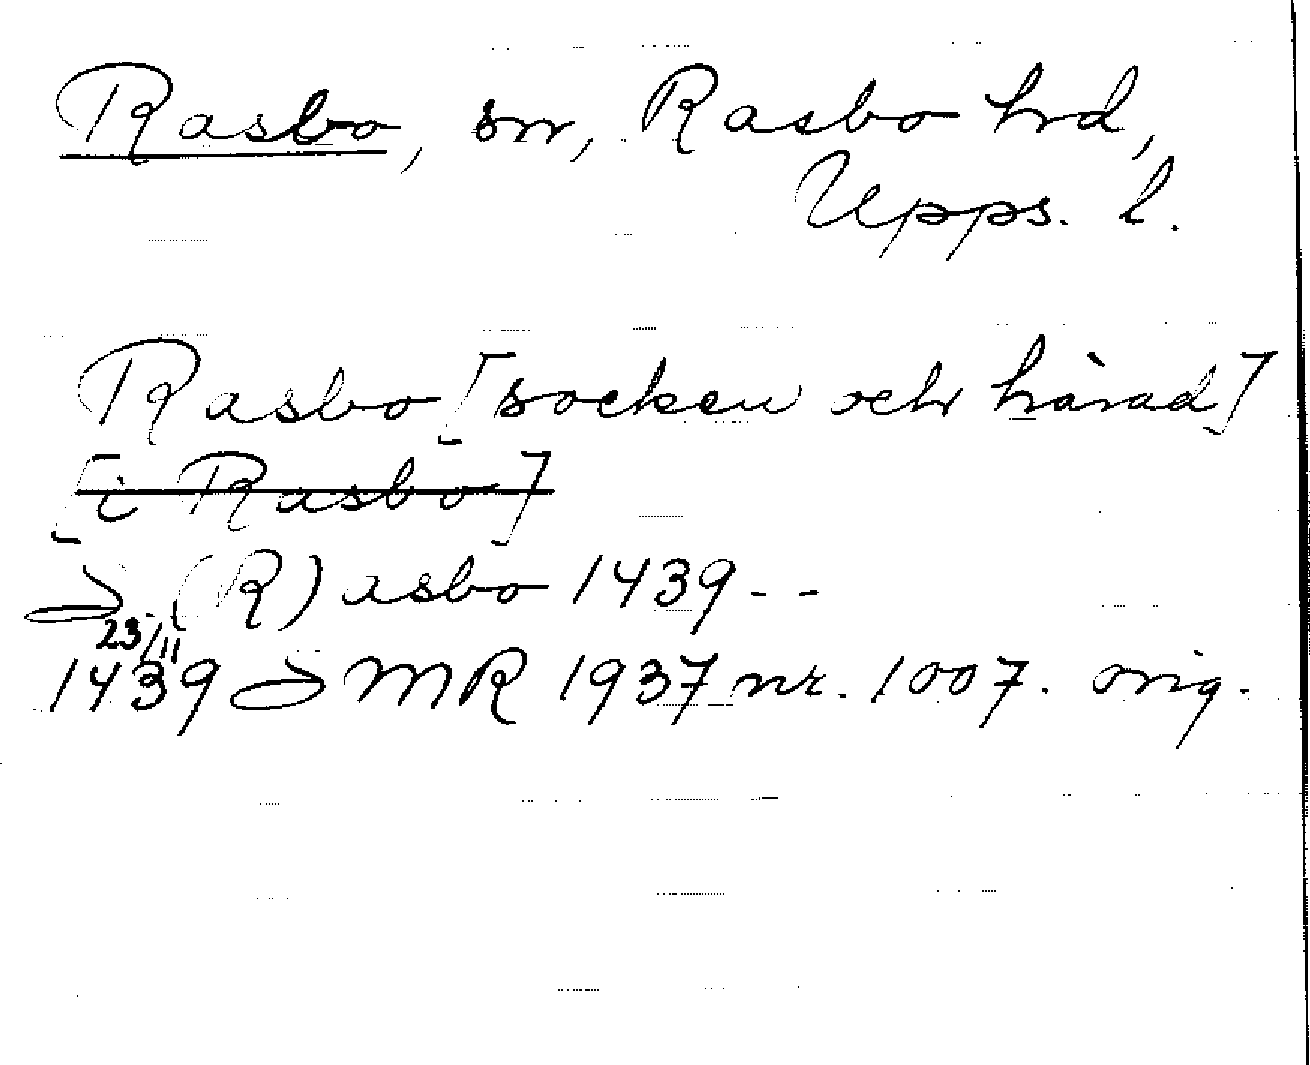 Rasbo, sn, Rasbo hrd,
Upps. l.
Rasbo [socken och härad]
[i Rasbo]
(R)asbo 1439--
23/11
1439 MR 1937 nr. 1007. orig.